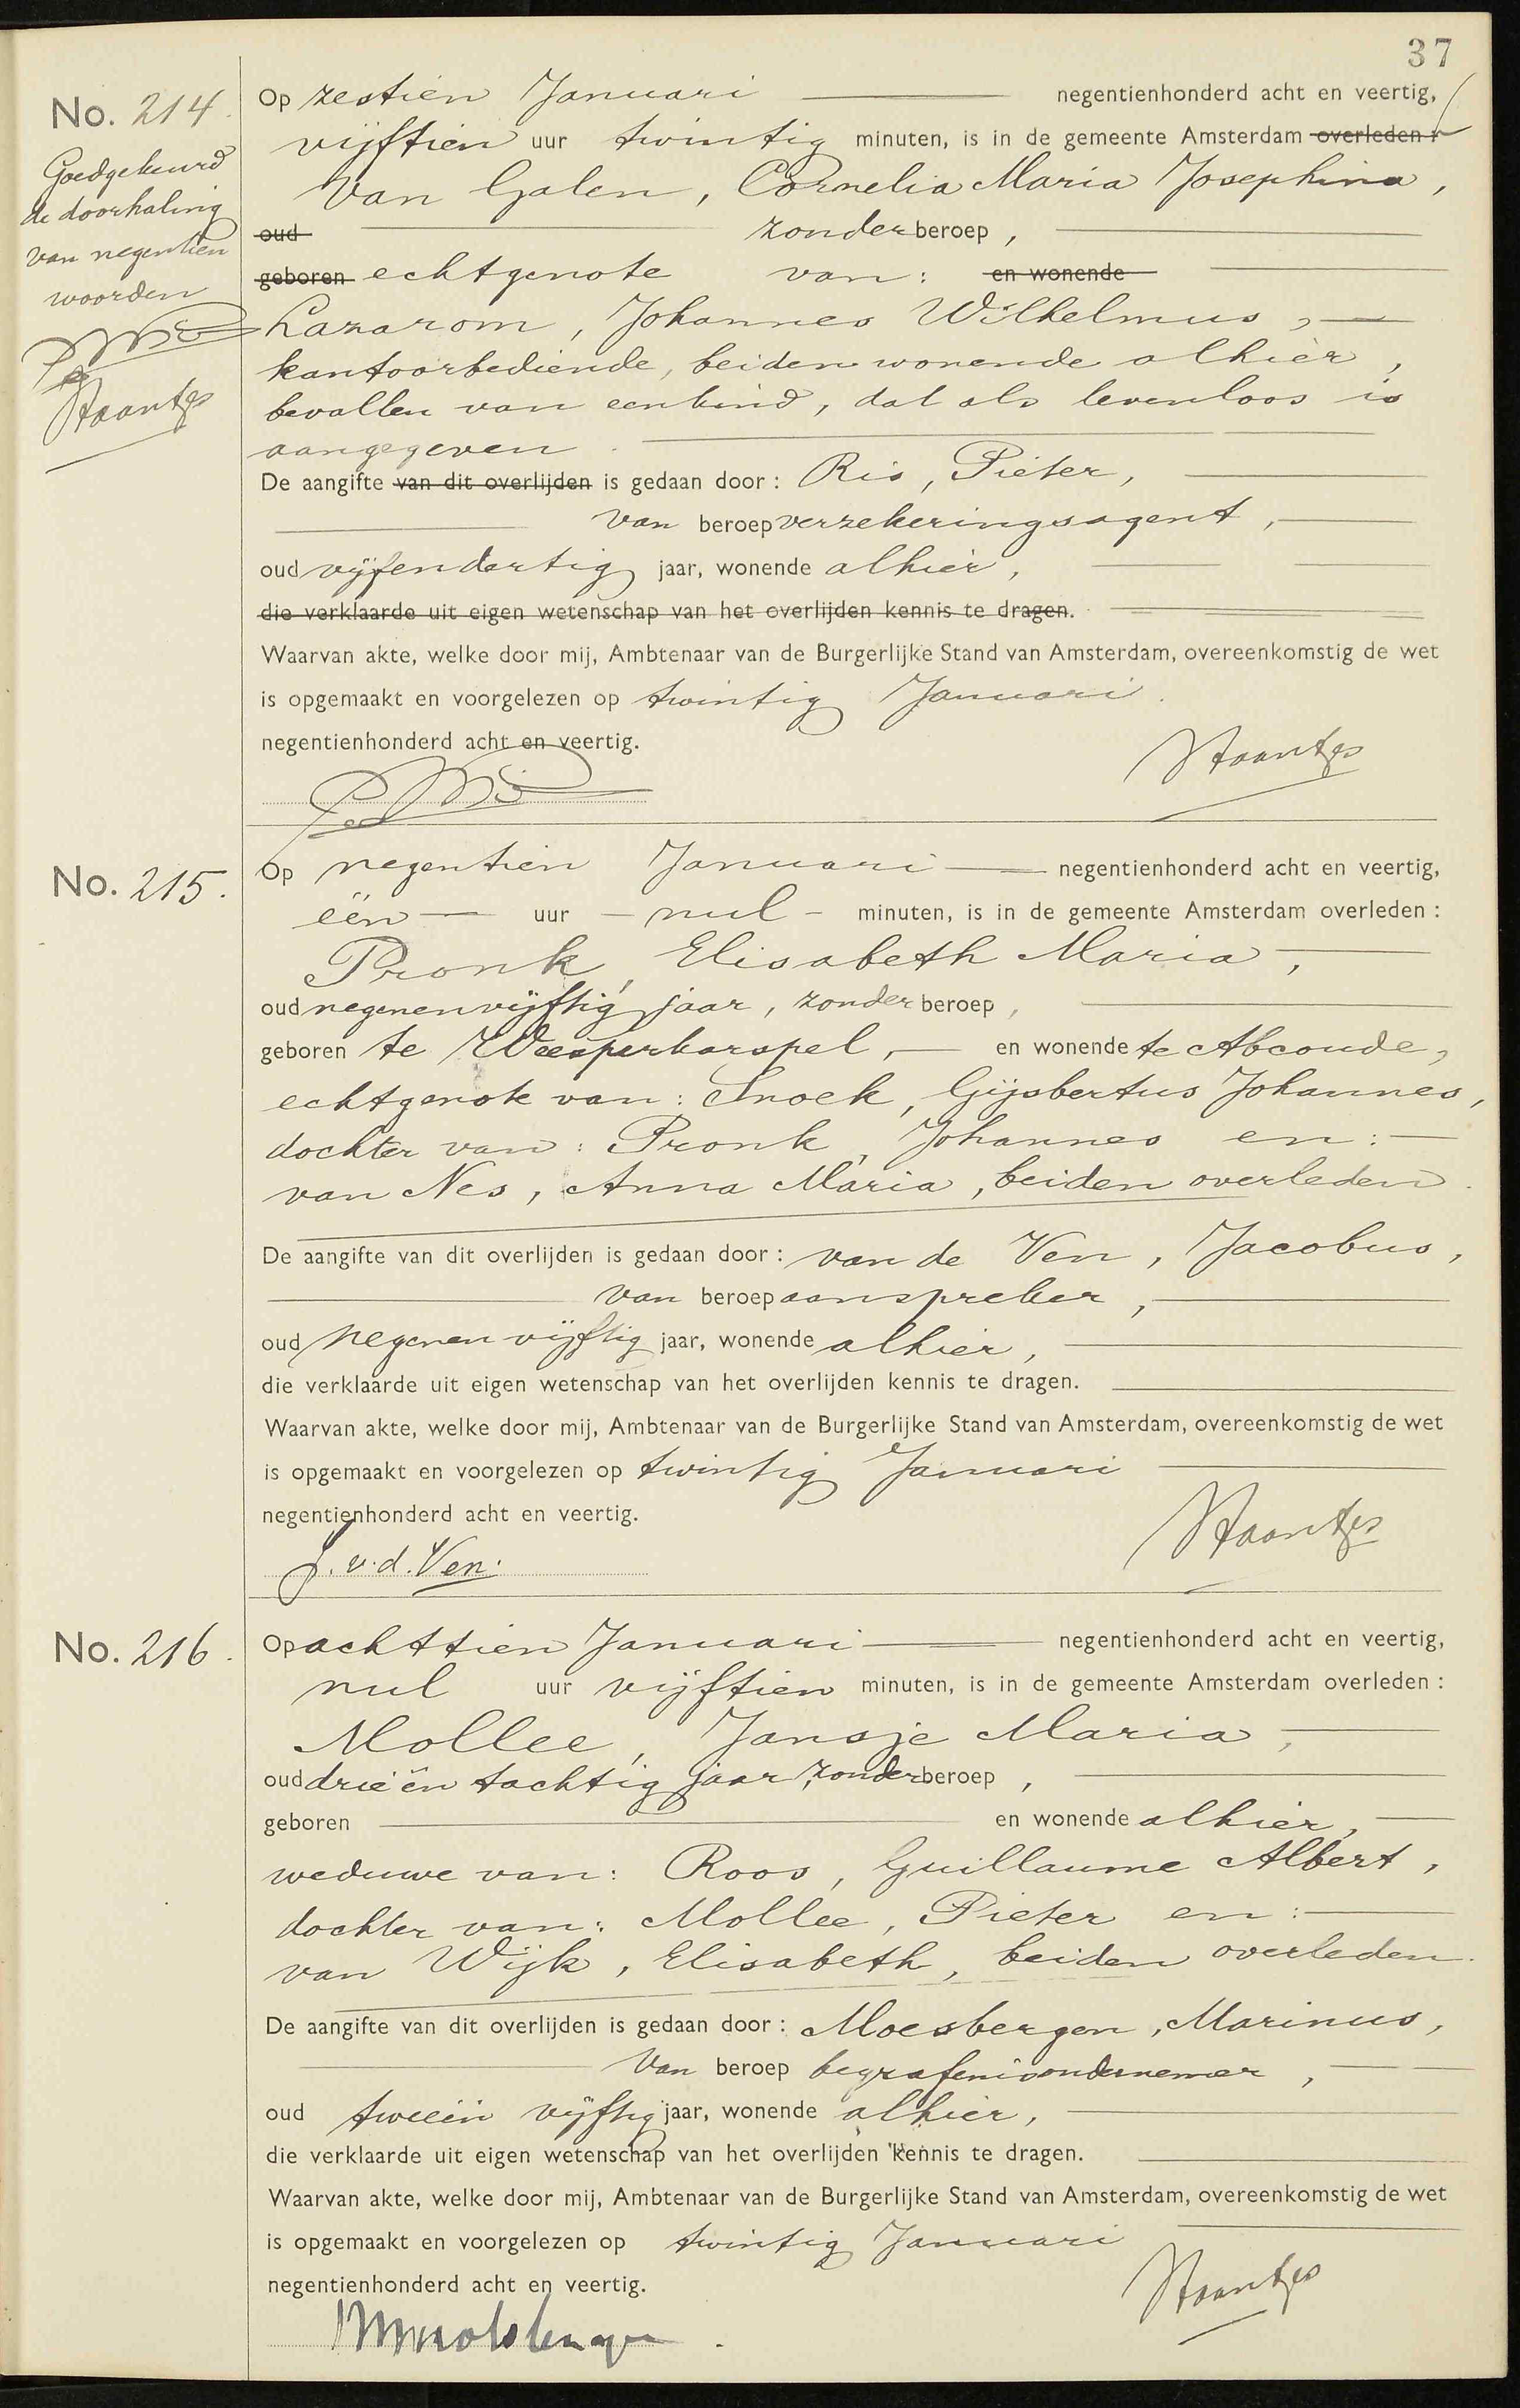 37
No. 214.
Goedgekeurd
de doorhaling
van negentien
woorden
Staantjes
Op zestien Januari negentienhonderd acht en veertig,
vijftien uur twintig minuten, is in de gemeente Amsterdam overleden :
van Galen, Cornelia Maria Josephina,
oud zonder beroep,
geboren echtgenote van: en wonende
Lazarom, Johannes Wilhelmus,
kantoorbediende, beiden wonende alhier,
bevallen van een kind, dat als levenloos is
aangegeven.
De aangifte van dit overlijden is gedaan door : Ris, Pieter,
van beroep verzekeringsagent,
oud vijfendertig jaar, wonende alhier,
die verklaarde uit eigen wetenschap van het overlijden kennis te dragen.
Waarvan akte, welke door mij, Ambtenaar van de Burgerlijke Stand van Amsterdam, overeenkomstig de wet
is opgemaakt en voorgelezen op twintig Januari.
negentienhonderd acht en veertig.
Staantjes
No. 215.
Op negentien Januari negentienhonderd acht en veertig,
één uur nul minuten, is in de gemeente Amsterdam overleden :
Pronk, Elisabeth Maria,
oud negenenvijftig jaar, zonder beroep,
geboren te Weesperkarspel, en wonende te Abcoude,
echtgenote van: Snoek, Gijsbertus Johannes,
dochter van: Pronk, Johannes en:
van Nes, Anna Maria, beiden overleden.
De aangifte van dit overlijden is gedaan door : van de Ven, Jacobus,
van beroep aanspreker,
oud negenenvijftig jaar, wonende alhier,
die verklaarde uit eigen wetenschap van het overlijden kennis te dragen.
Waarvan akte, welke door mij, Ambtenaar van de Burgerlijke Stand van Amsterdam, overeenkomstig de wet
is opgemaakt en voorgelezen op twintig Januari
negentienhonderd acht en veertig.
Staantjes
J. v. d. Ven.
No. 216.
Op achttien Januari negentienhonderd acht en veertig,
nul uur vijftien minuten, is in de gemeente Amsterdam overleden :
Mollee, Jansje Maria,
oud drieëntachtig jaar, zonder beroep,
geboren en wonende alhier,
weduwe van: Roos, Guillaume Albert,
dochter van: Mollee, Pieter en:
van Wijk, Elisabeth, beiden overleden.
De aangifte van dit overlijden is gedaan door : Moesbergen, Marinus,
van beroep begrafenisondernemer,
oud tweeën vijftig jaar, wonende alhier,
die verklaarde uit eigen wetenschap van het overlijden kennis te dragen.
Waarvan akte, welke door mij, Ambtenaar van de Burgerlijke Stand van Amsterdam, overeenkomstig de wet
is opgemaakt en voorgelezen op twintig Januari
negentienhonderd acht en veertig.
Staantjes